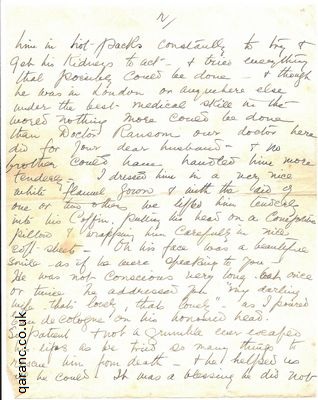 2/
him in hot-packs constantly to try &
get his Kidneys to act - & tried everything
that possibly could be done - & though
he was in London or anywhere else
under the best medical skill in the
world nothing more could be done
than Doctor Ransom our doctor here
did for your dear husband - & no
brother could have handled him more
tenderly - I dressed him in a very nice
white flannel gown & with the aid of
one or two others we lifted him tenderly
into his Coffin, putting his head on a
pillow & wrapping him carefully in nice
soft sheets - On his face was a beautiful
smile - as if he were speaking to you -
He was not conscious very long but once
or twice he addressed you "my darling
wife that's lovely, that lovely" - as I poured
eau de cologne on his honoured head.
So patient & not a grumble ever escaped
lips as we tried so many things to
rescue him from death - & he helped us
he could. It was a blessing he did not
qaranc.co.uk